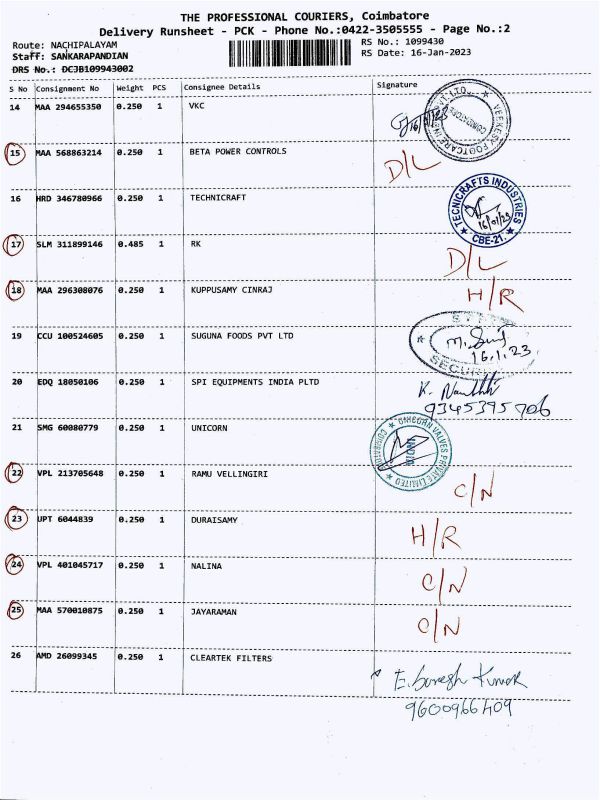 THE PROFESSIONAL COURIERS, Coimbatore
Delivery Runsheet - PCK - Phone No.:0422-3505555 - Page No.:2
Route: NACHIPALAYAM
RS No.: 1099430
Staff: SANKARAPANDIAN
RS Date: 16-Jan-2023
DRS No.: DCJB109943002
S No Consignment No Weight PCS Consignee Details Signature
14 MAA 294655350 0.250 1 VKC
16/1/23
VEEKESY FOOTCARE PVT LTD. COIMBATORE
15 MAA 568863214 0.250 1 BETA POWER CONTROLS D/L
16 HRD 346780966 0.250 1 TECHNICRAFT
TECNICRAFTS INDUSTRIES
16/01/23
CBE-21.
17 SLM 311899146 0.485 1 RK D/L
18 MAA 296308076 0.250 1 KUPPUSAMY CINRAJ H/R
19 CCU 100524605 0.250 1 SUGUNA FOODS PVT LTD
16.1.23
20 EDQ 18050106 0.250 1 SPI EQUIPMENTS INDIA PLTD
9345395706
21 SMG 60080779 0.250 1 UNICORN
UNICORN VALVES PRIVATE LIMITED
INDIA
COIMBATORE
22 VPL 213705648 0.250 1 RAMU VELLINGIRI C/N
23 UPT 6044839 0.250 1 DURAISAMY H/R
24 VPL 401045717 0.250 1 NALINA C/N
25 MAA 570010875 0.250 1 JAYARAMAN C/N
26 AMD 26099345 0.250 1 CLEARTEK FILTERS
E. Suresh Kumar
9600966409